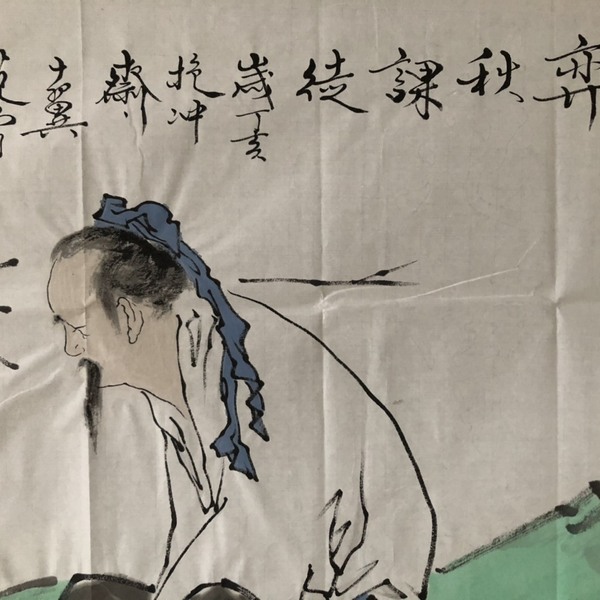 弈秋課徒
歲丁亥
抱冲
齋
十翼
范曾